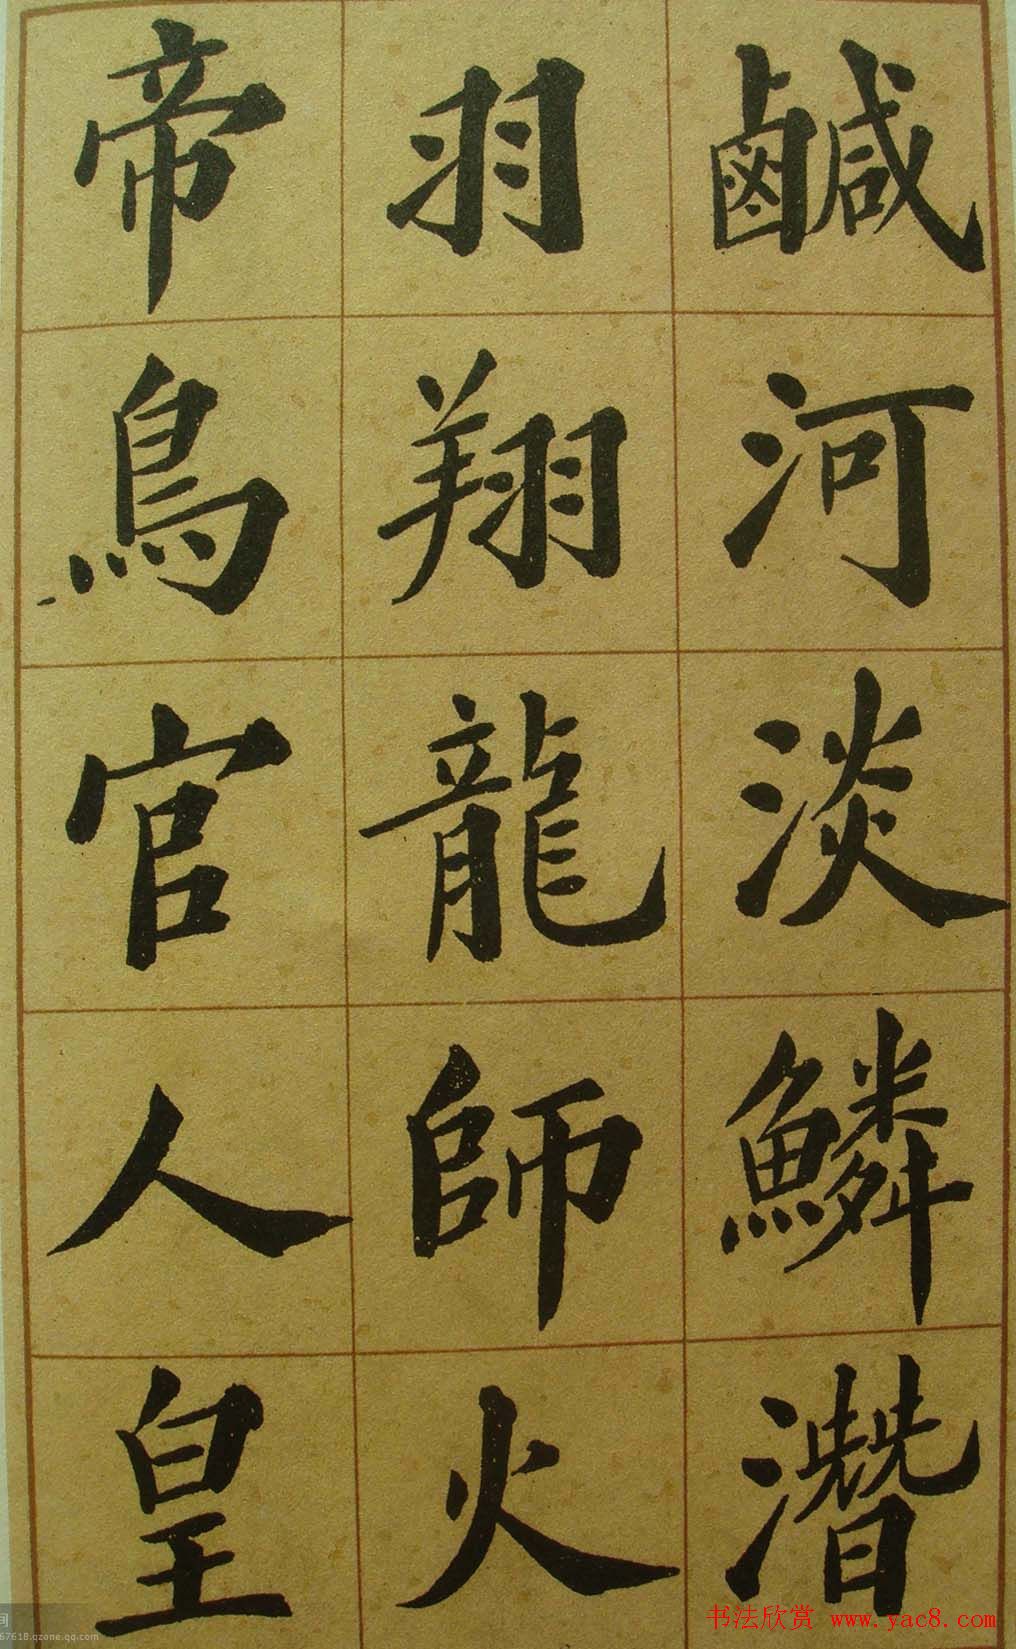 鹹河淡鱗潛
羽翔龍師火
帝鳥官人皇
书法欣赏 www.yac8.com
间
67618.qzone.qq.com